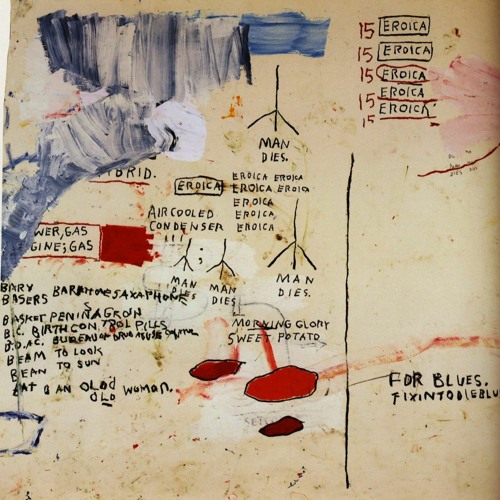 15 EROICA
15 EROICA
15 EROICA
EROICA
15 EROICA
15
MAN
DIES.
BRID.
EROICA
EROICA EROICA
EROICA EROICA
EROICA
EROICA,
EROICA
AIRCOOLED
CONDENSER
WER, GAS
GINE; GAS
;
MAN
DIES
MAN
DIES
MAN
DIES.
BARY
BASERS BARITONE SAXAPHONE
&
BASKET PENINAGRON
B.C. BIRTH CONTROL PILLS
B.D.A.C. BUREAU OF DRUG ABUSE CONTROL
BEAM TO LOOK
BEAN TO SUN
BAT AN OLD
OLD WOMAN.
MORNING GLORY
SWEET POTATO
FOR BLUES.
FIXINTODIEBLU